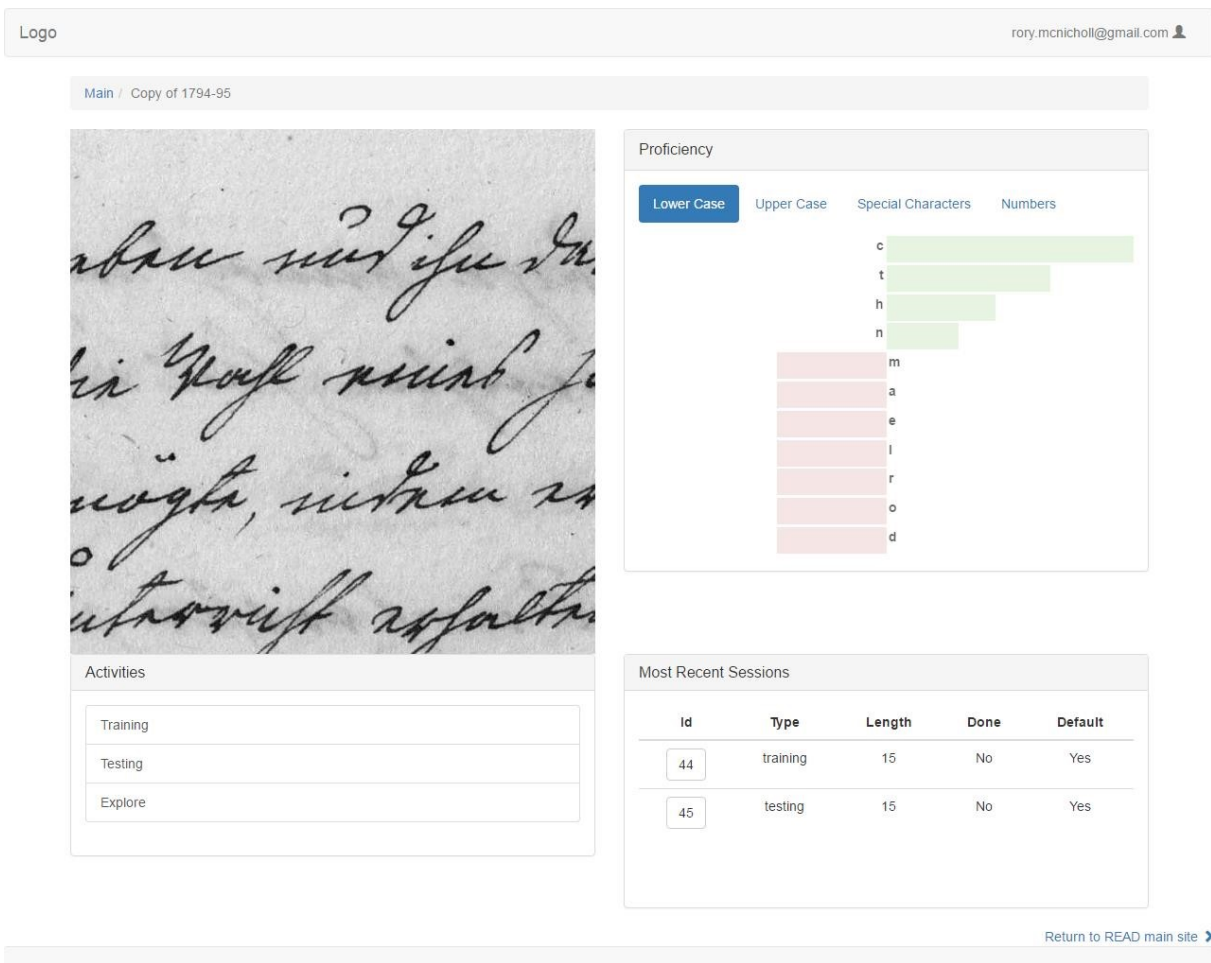 Logo
rory.mcnicholl@gmail.com
Main / Copy of 1794-95
aben und ihn
die Wahl meines
mögte, indem er
Unterricht erhalten
Proficiency
Lower Case Upper Case Special Characters Numbers
c
t
h
n
m
a
e
l
r
o
d
Activities
Training
Testing
Explore
Most Recent Sessions
Id Type Length Done Default
44 training 15 No Yes
45 testing 15 No Yes
Return to READ main site